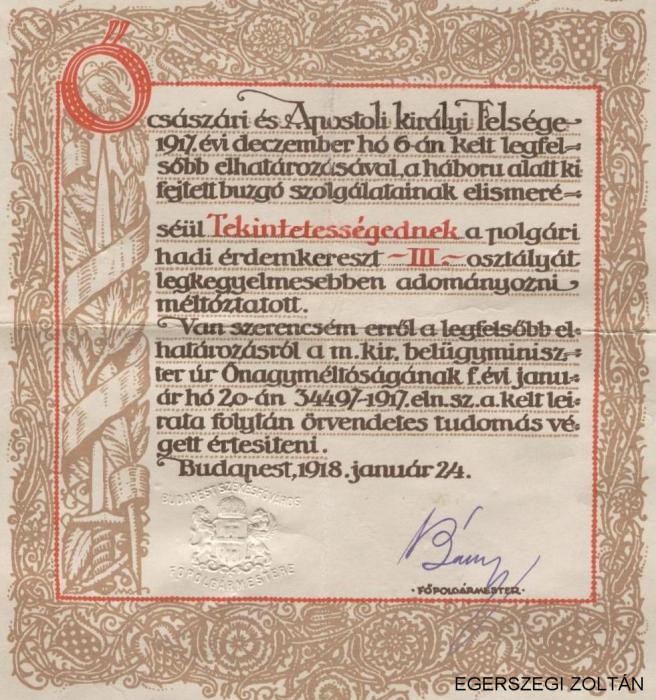 Ő
császári és Apostoli királyi Felsége
1917. évi deczember hó 6-án kelt legfel-
sőbb elhatározásával, a háboru alatt ki
fejtett buzgó szolgálatainak elismeré-
séül Tekintetességednek a polgári
hadi érdemkereszt ~III~ osztályát
legkegyelmesebben adományozni
méltóztatott.
Van szerencsém erről a legfelsőbb el-
határozásról a m. kir. belügyminisz-
ter úr Őnagyméltóságának f. évi janu-
ár hó 20-án 34497-1917. eln. sz. a. kelt lei-
rata folytán örvendetes tudomás vé-
gett értesiteni.
Budapest, 1918. január 24.
BUDAPEST SZÉKESFŐVÁROS
FŐPOLGÁRMESTERE
· FŐPOLGÁRMESTER ·
EGERSZEGI ZOLTÁN